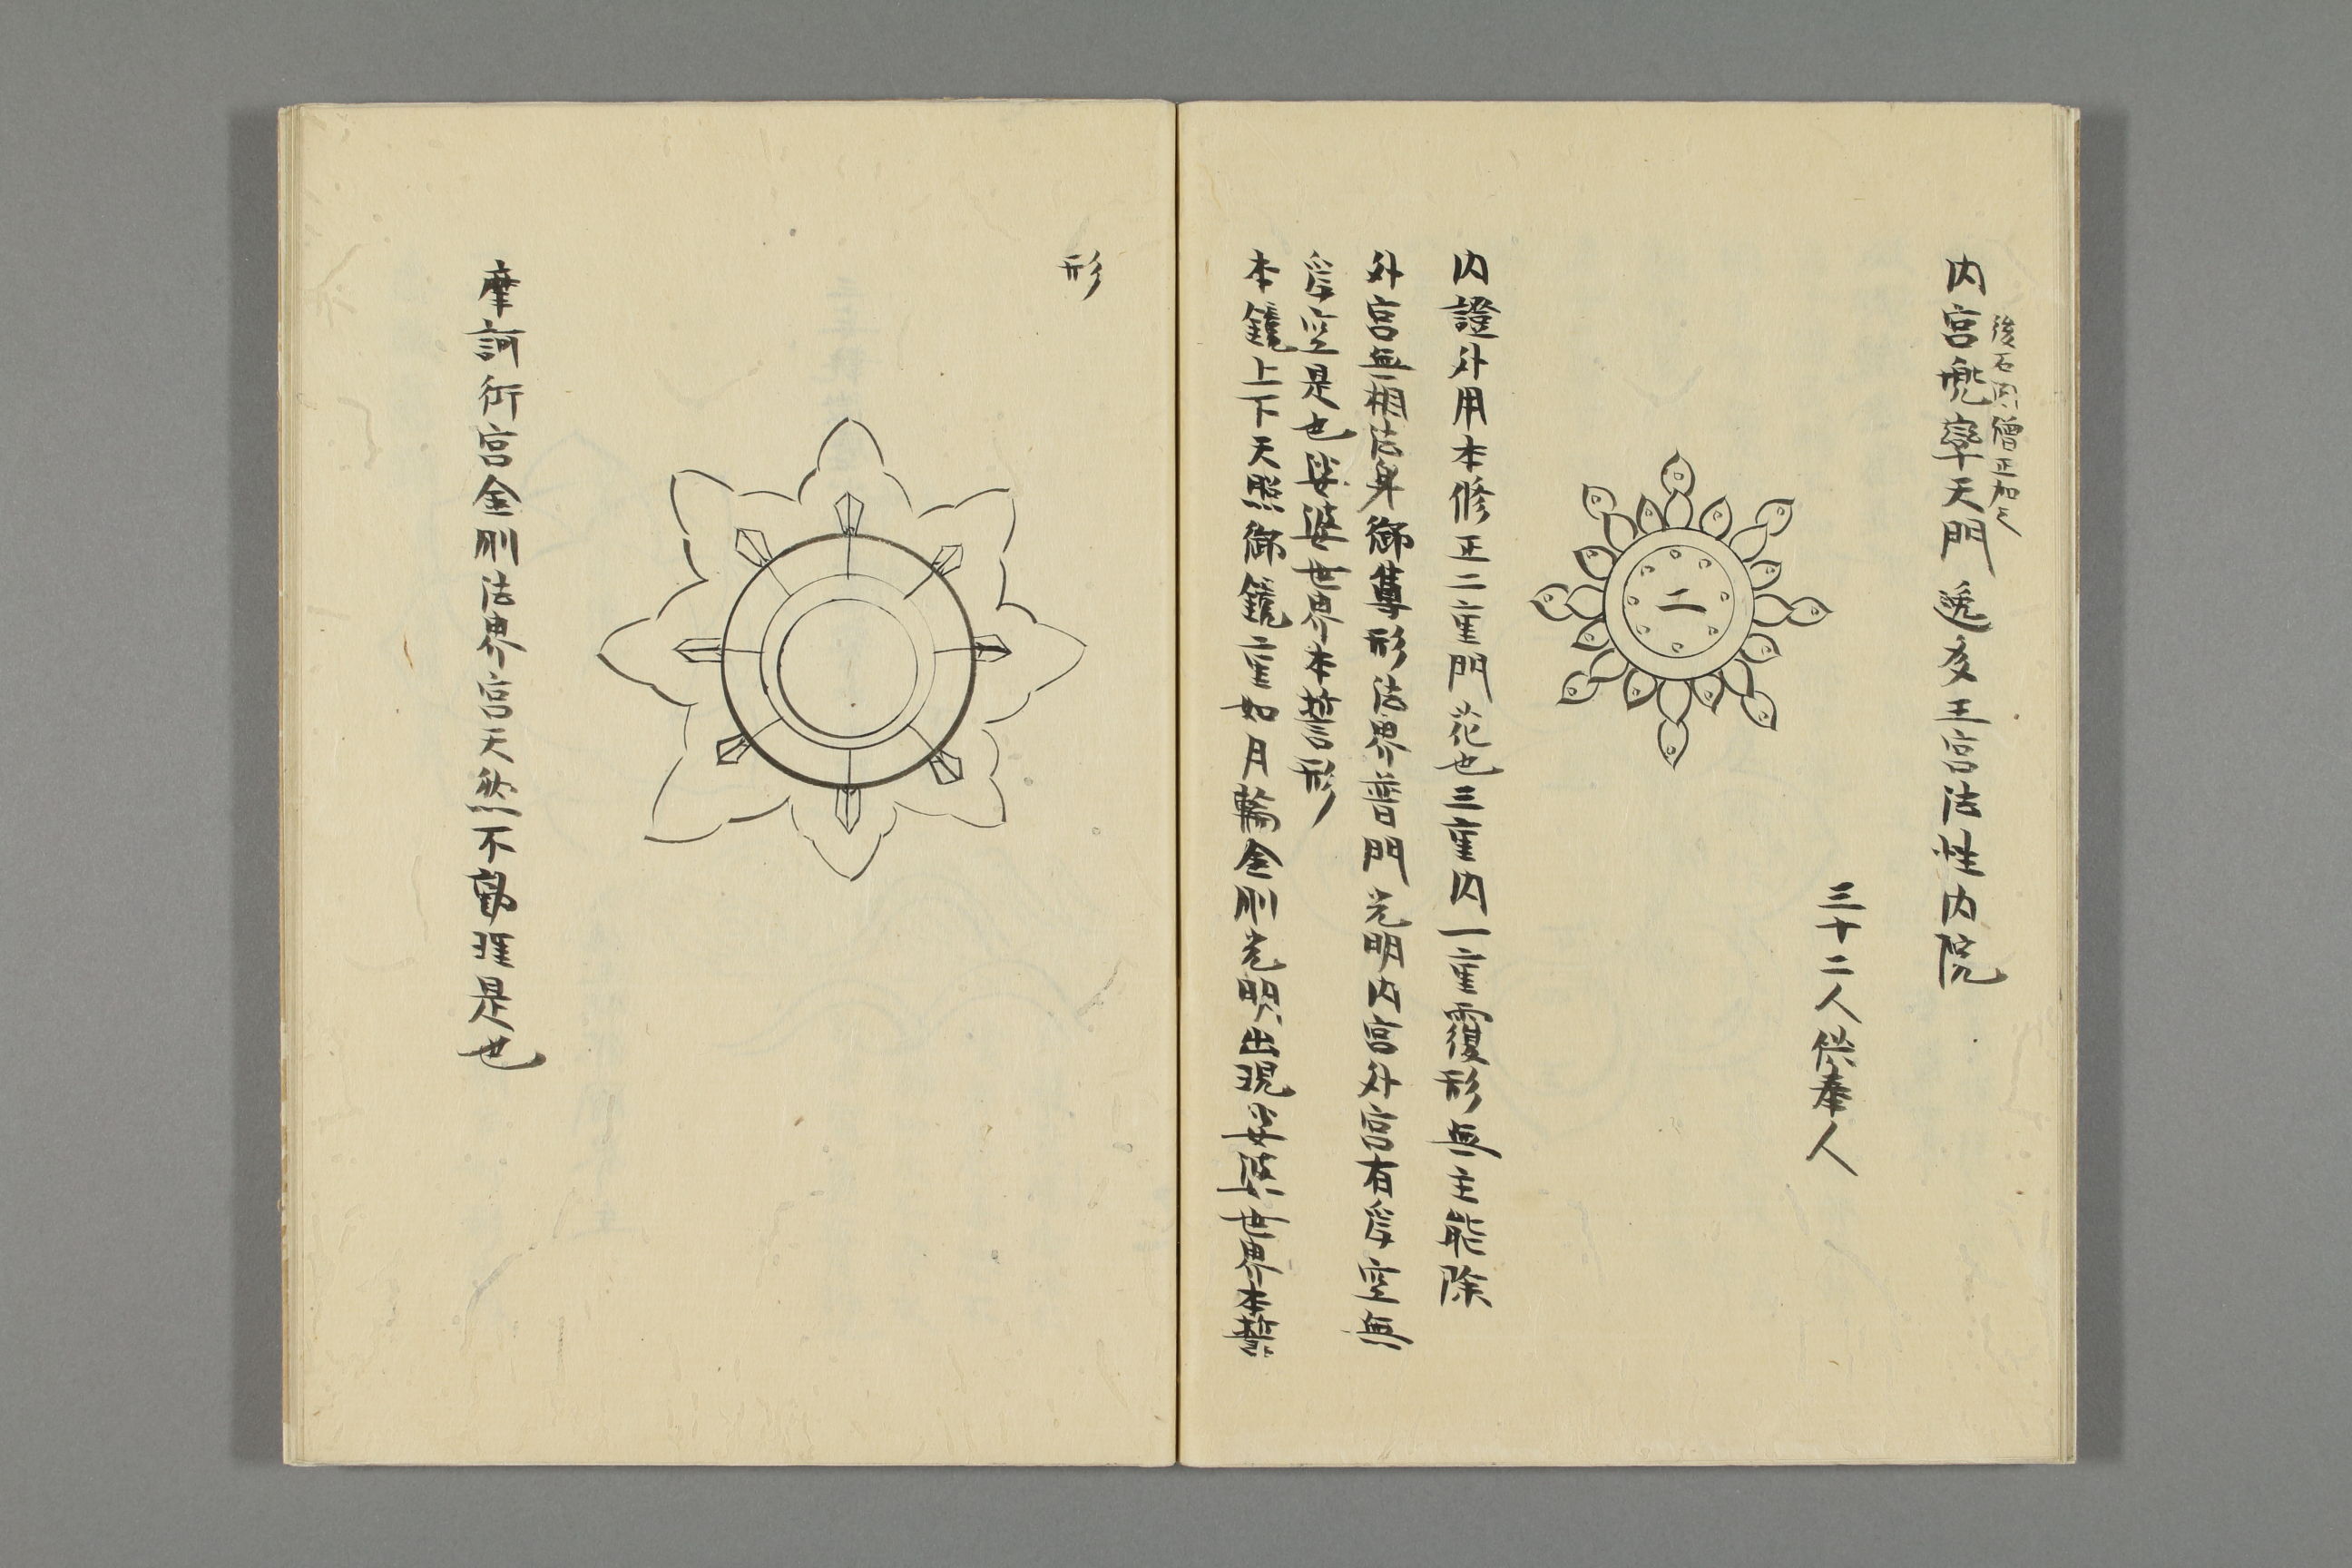 内宮兜率天門 逸多王宮法性内院
後石内僧正加之
三十二人供奉人
二
内證外用本修正二重門花也三重内一重覆形無主能除
外宮無相法身御尊形法界普門光明内宮外宮有為空無
為空是也娑婆世界本誓形
本鏡上下天照御鏡二重如月輪金剛光明出現娑婆世界本誓
形
摩訶衍宮金剛法界宮天然不動理是也